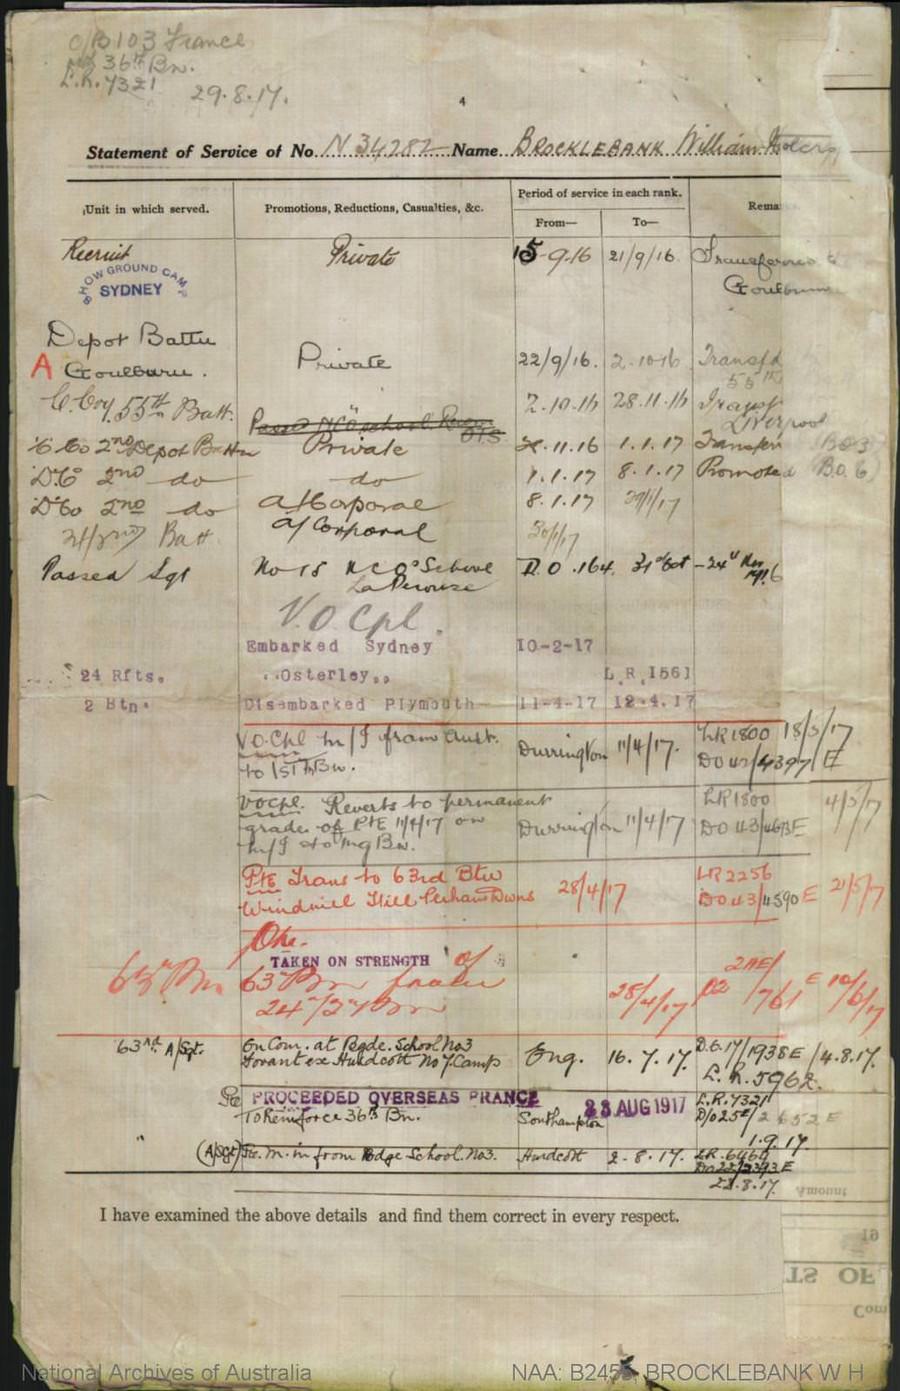 O/B 103 France
36th Bn.
L.R. 7321
29.8.17.
4
Statement of Service of No. N34282 Name BROCKLEBANK William
Unit in which served. Promotions, Reductions, Casualties, &c. Period of service in each rank. Rema
From— To—
Recruit Private 15-9-16 21/9/16. Transferred to
SHOW GROUND CAMP Goulburn
SYDNEY
Depot Battn
A Goulburn. Private 22/9/16. 2.10.16 Transfd
55th
C. Coy. 55th Batt. 2.10.16 28.11.16 Transf
Liverpool
Passed NCO school
C Co 2nd Depot Battn Private .11.16 1.1.17 Transfer
D Co 2nd do do 1.1.17 8.1.17 Promoted (B.O. 6)
D Co 2nd do A/Corporal 8.1.17 29/1/17
24/2nd Batt. A/Corporal 30/1/17
Passed Sgt No 15 NCO's School D.O. 164. 31st Oct - 24th Nov
La Perouse 1916
V.O. Cpl.
Embarked Sydney 10-2-17
24 Rfts. "Osterley" L.R. 1561
2 Btn. Disembarked Plymouth 11-4-17 12.4.17
V.O. Cpl M/I from Aust. Durrington 11/4/17. LR 1800 18/5/17
to 1st Bn. DO 43/4397 E
VO Cpl. Reverts to permanent LR 1800 4/5/17
grade of Pte 11/4/17 on Durrington 11/4/17 DO 43/ E
M/I to Trg Bn.
Pte Trans to 63rd Btn 28/4/17 LR 2256
Windmill Hill Perham Downs DO 43/4590 E 21/5/17
TAKEN ON STRENGTH of
63rd Bn 63rd Bn from 28/4/17 /761 E 10/6/17
24th/2nd Bn
63rd A/Sgt. On Com. at Bgde. School No 3 Eng. 16.7.17. D.O. 17/1938E/4.8.17.
Hurdcott No 7 Camp L.R. 5962.
Pte PROCEEDED OVERSEAS FRANCE Southampton 28 AUG 1917 L.R. 7321
To Reinforce 36th Bn. D/O 25E/2652E
1.9.17.
" (A/Sgt) M. in from Bdge School. No 3. Hurdcott 2.8.17. LR.
22.8.17.
Amount
I have examined the above details and find them correct in every respect.
19
TS OF
Com
National Archives of Australia NAA: B2455, BROCKLEBANK W H